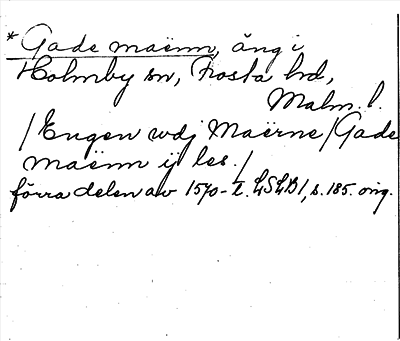 * Gade maënn, äng i
Holmby sn, Frosta hd,
Malm. l.
/ Engen wdj Maërne / Gade
maënn ij les. /
förra delen av 1570-t. LSLB 1, s. 185. orig.